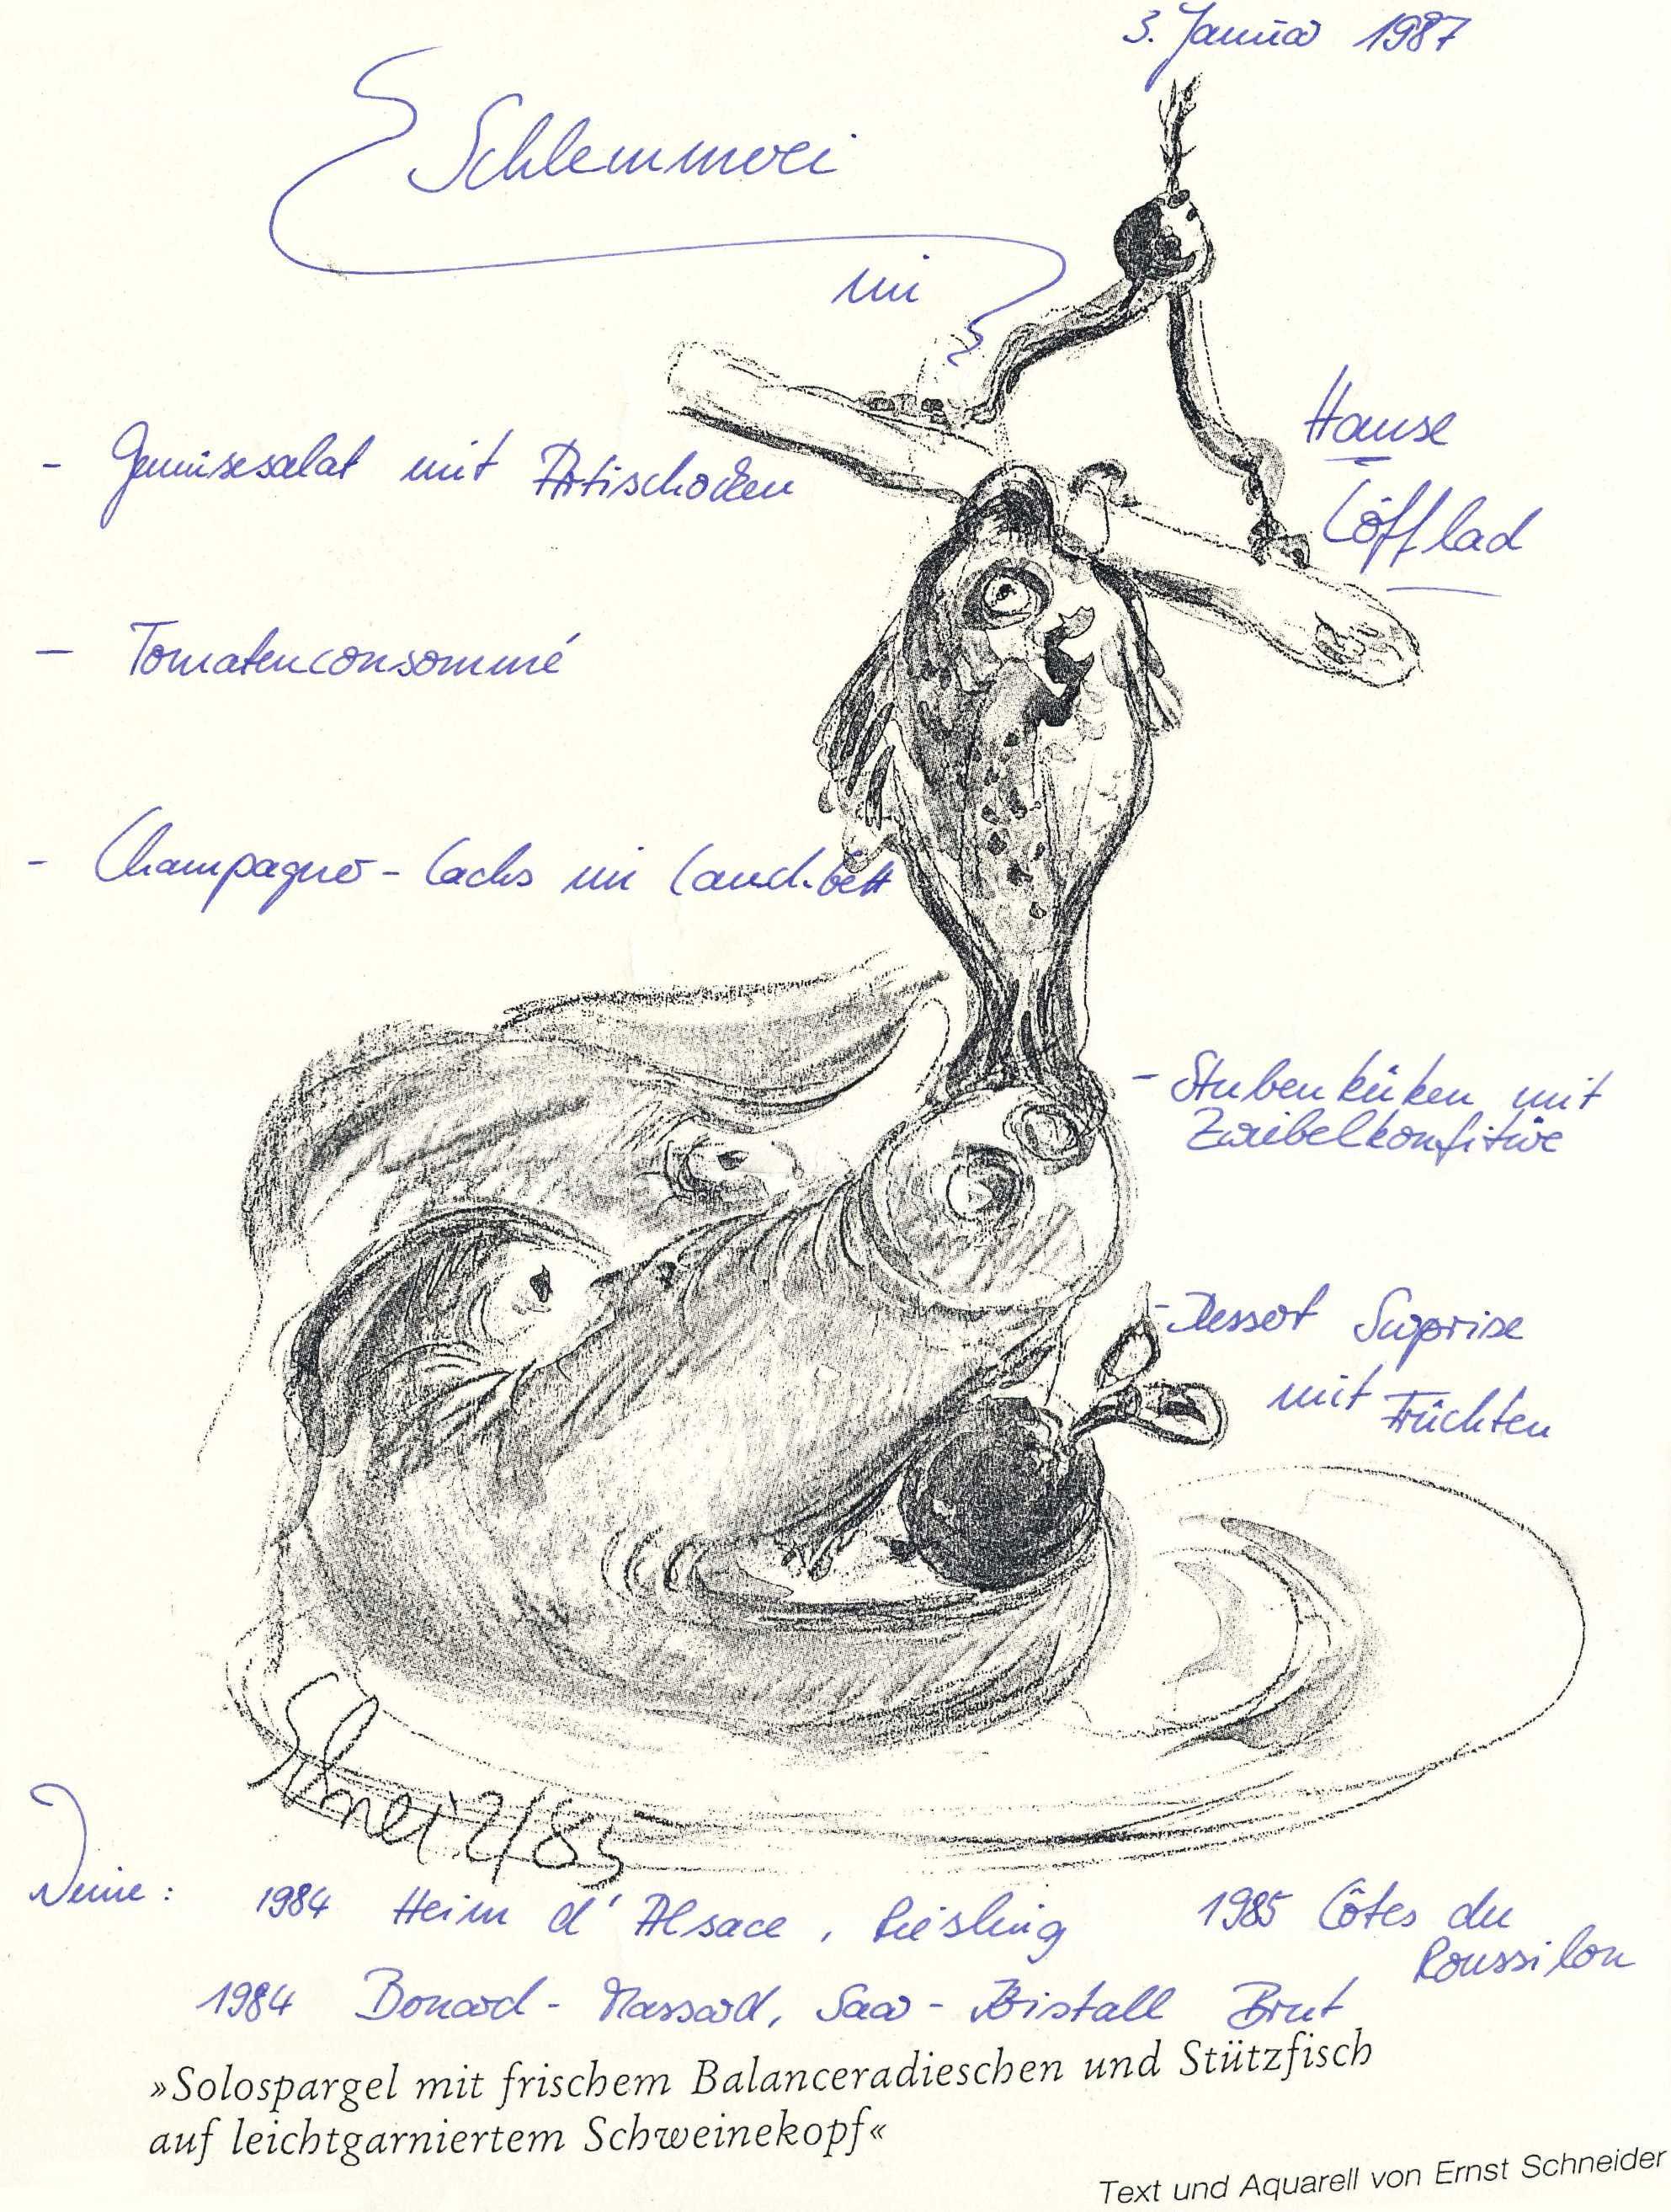 3. Januar 1987
Schlemmerei
im
Hause
Löfflad
- Gemüsesalat mit Artischocken
- Tomatenconsommé
- Champagner-Lachs im Lauchbett
- Stubenküken mit
Zwiebelkonfitüre
- Dessert Surprise
mit Früchten
Schnei 2/85
Weine: 1984 Heim d'Alsace, Riesling 1985 Côtes du
Roussilon
1984 Bonard-Massard, Saar-Kristall Brut
»Solospargel mit frischem Balanceradieschen und Stützfisch
auf leichtgarniertem Schweinekopf«
Text und Aquarell von Ernst Schneider